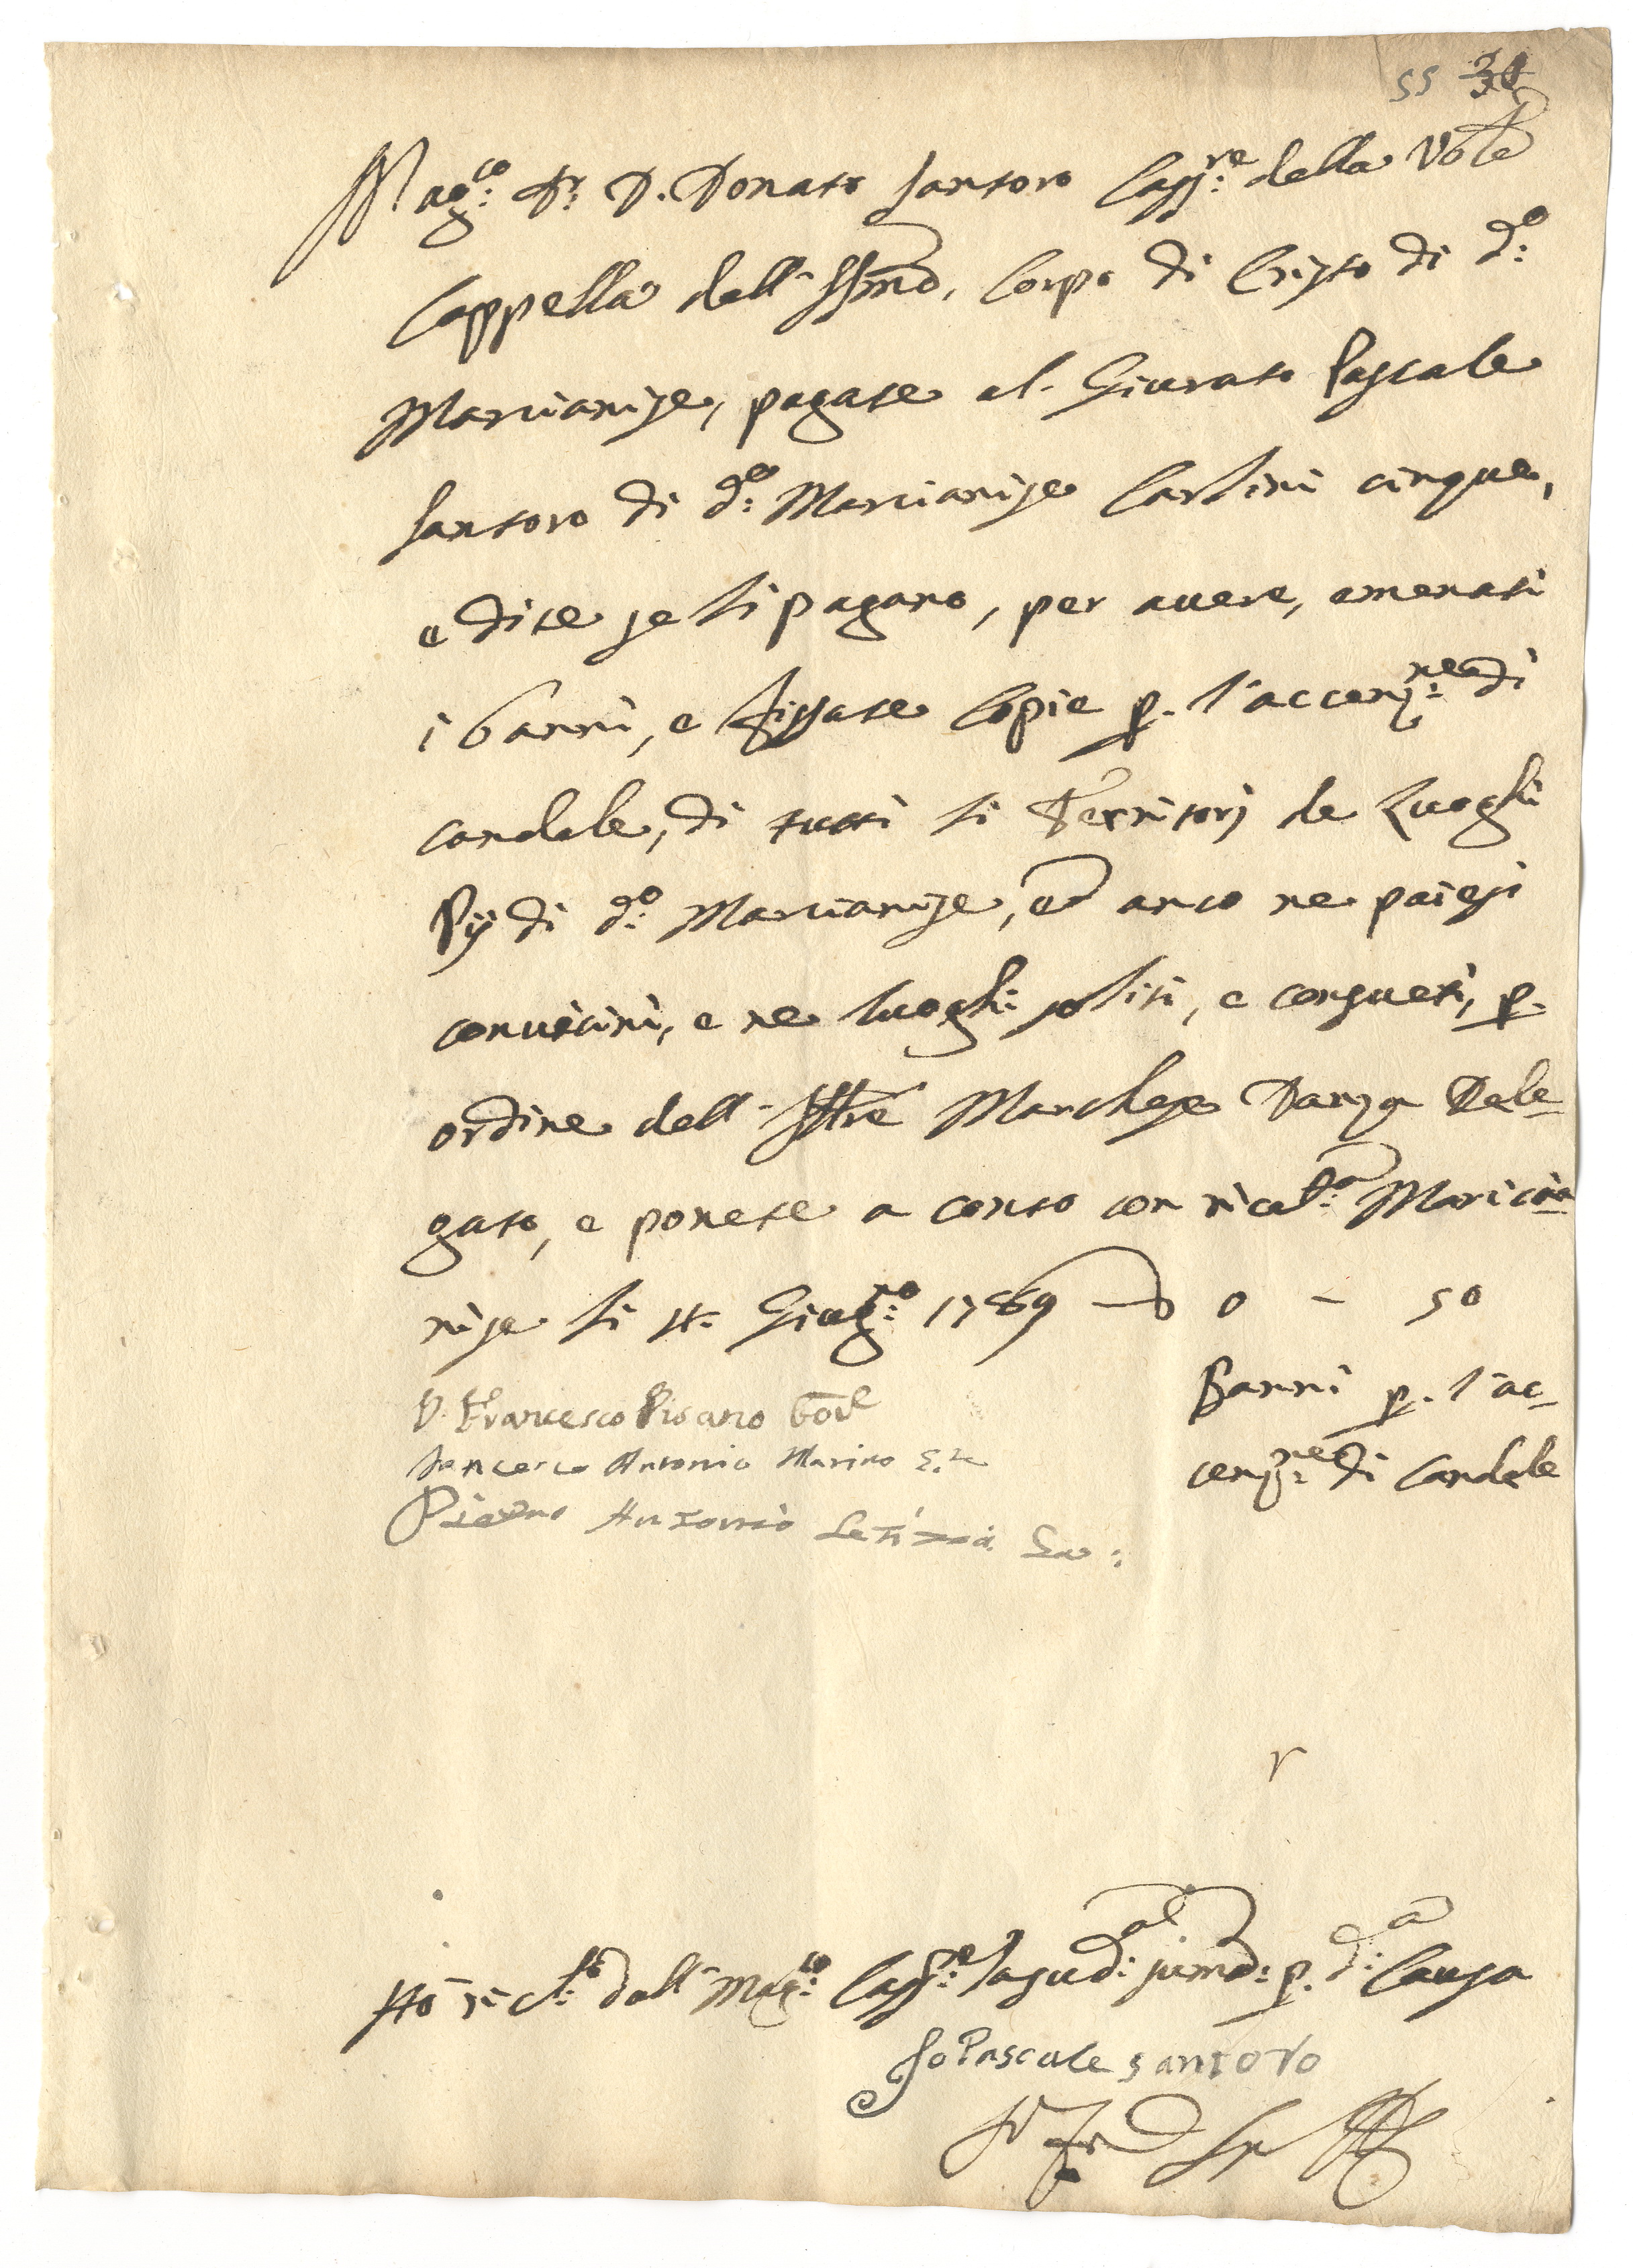 55 31
Mag:co Dr: D. Donato Santoro Cass:re della Ve[n]le
Cappella dell' SSmo, Corpo di Cristo di d:o
Marcianise, pagate al Giurato Pascale
Santoro di d:o Marcianise Carlini cinque,
e dite se li pagano, per avere, emenati
i banni, e fissate Copie p. l'accenz:ne di
candele, di tutti li Territorj de Luoghi
Pij di d:o Marcianise, ed anco ne paiesi
convicini, e ne luoghi soliti, e consueti, p.
ordine dell' Illre Marchese Danza Dele-
gato, e ponete a conto con ricet:a Marcia-
nise li Giug:no 1769 — D 0 – 50
D. Francesco Pisano
Banni p. l'ac-
Francesco Antonio Marino
cenz:ne di Candele
Pietro Antonio Letizia
Hò ric:to dall' Mag:co Cass:re la sud:a sum:a p. d:a Causa
Io Pascale Santoro